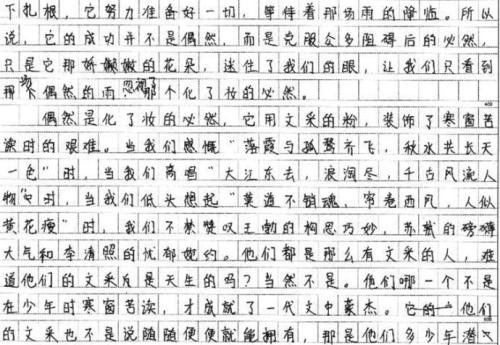 下扎根，它努力准备好一切，等待着那场雨的降临。所以
说，它的成功并不是偶然，而是克服众多阻碍后的必然，
只是它那娇嫩的花朵，迷住了我们的眼，让我们只看到
那场偶然的雨，忽视了那个化了妆的必然。
偶然是化了妆的必然，它用文采的粉，装饰了寒窗苦
读时的艰难。当我们感慨“落霞与孤鹜齐飞，秋水共长天
一色”时，当我们高唱“大江东去，浪淘尽，千古风流人
物”时，当我们低头想起“莫道不销魂，帘卷西风，人似
黄花瘦”时，我们不禁赞叹王勃的构思巧妙，苏轼的磅礴
大气和李清照的忧郁婉约。他们都是那么有文采的人，难
道他们的文采是天生的吗？当然不是。他们哪一个不是
在少年时寒窗苦读，才成就了一代文中豪杰。它的一他们
的文采也不是说随随便便就能拥有，那是他们多少年潜心